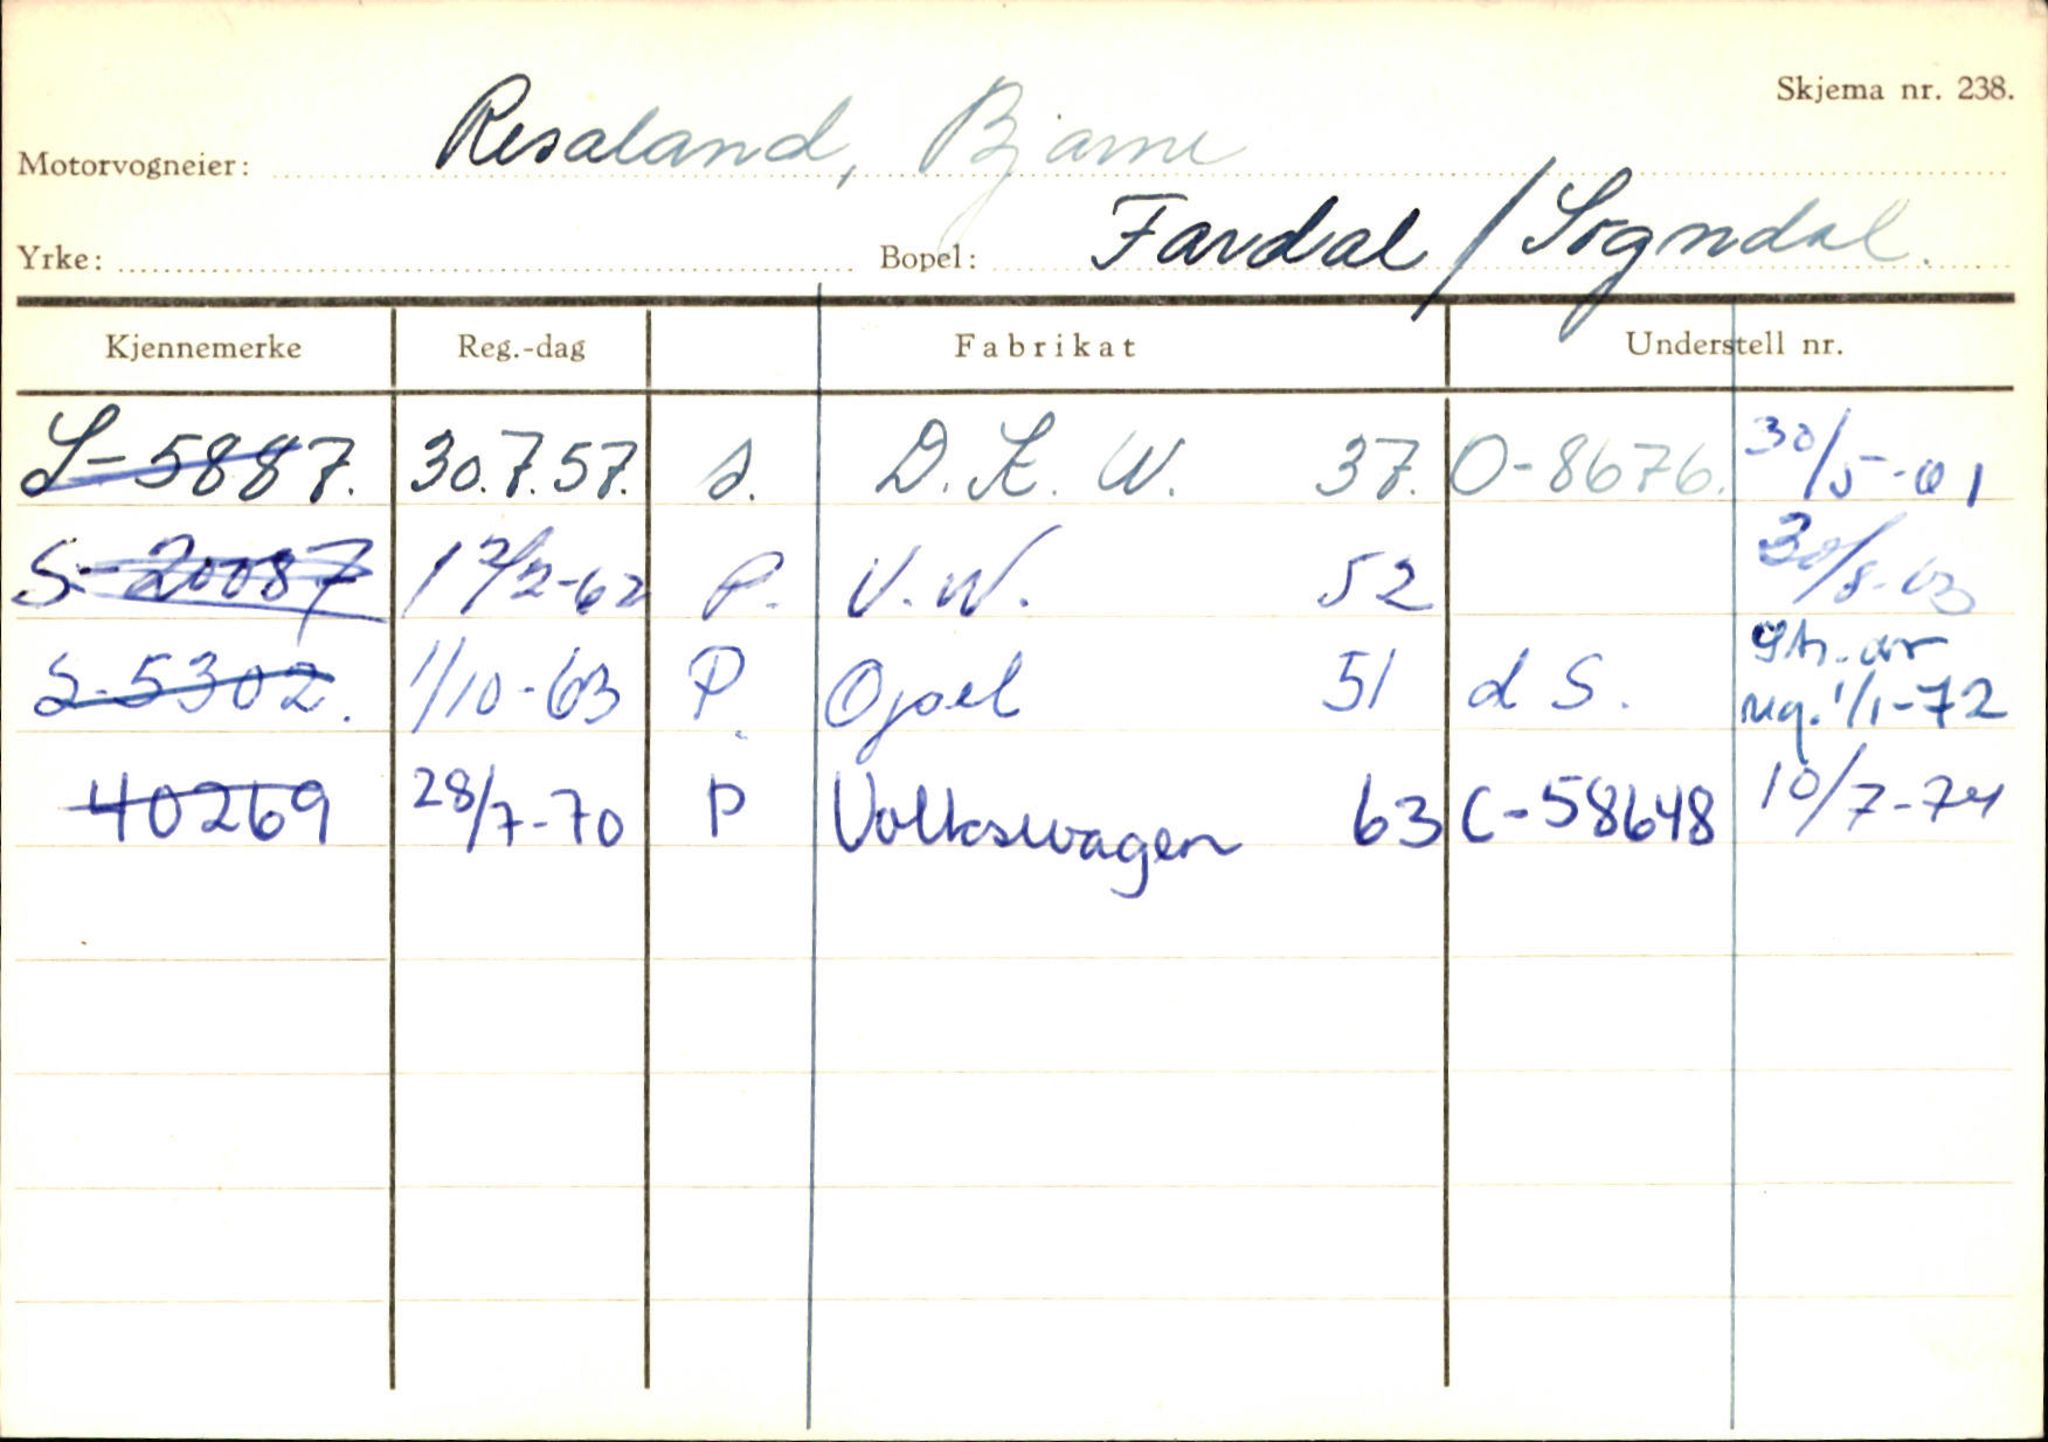 Skjema nr. 238.
Motorvogneier: Resaland, Bjarne
Yrke: Bopel: Fardal / Sogndal.
Kjennemerke Reg.-dag Fabrikat Understell nr.
S-5887. 30.7.57. s. D.K.W. 37. O-8676. 30/5-61
S-20087 12/2-62 P. V.W. 52 30/8-63
S-5302. 1/10-63 P. Opel 51 d S. str. av reg. 1/1-72
40269 28/7-70 P Volkswagen 63 C-58648 10/7-74